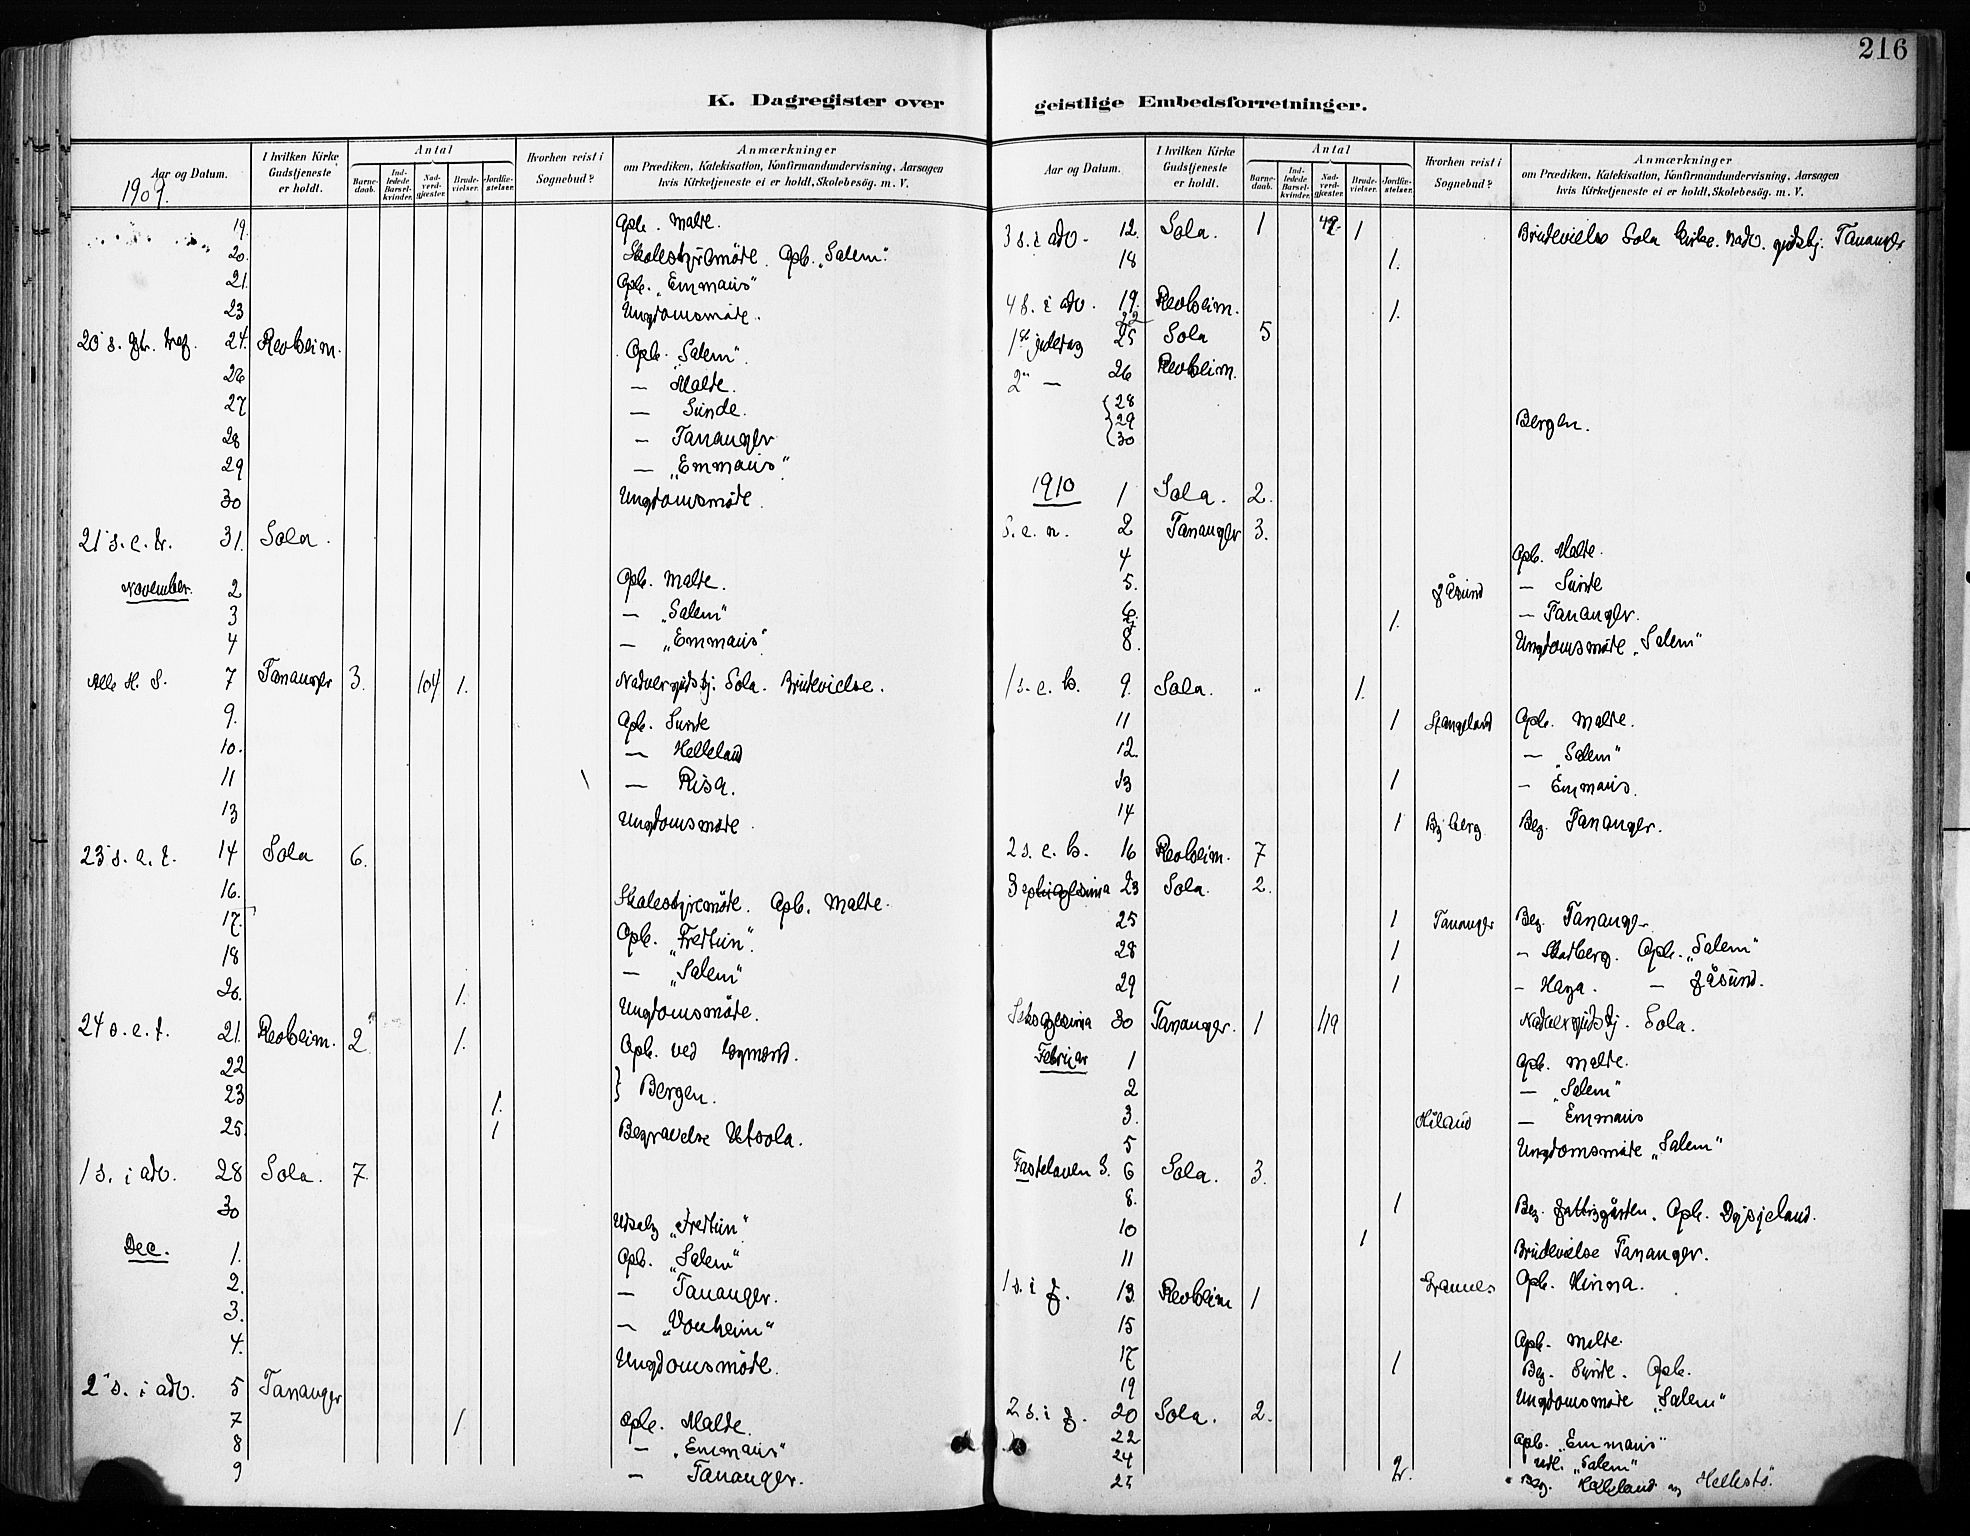 216
K. Dagregister over
Aar og Datum. I hvilken Kirke Gudstjeneste er holdt. Antal Barnedaab. Indledede Barselkvinder. Nadverdgjester. Brudevielser. Jordfæstelser. Hvorhen reist i Sognebud? Anmærkninger om Prædiken, Katekisation, Konfirmandundervisning, Aarsagen hvis Kirketjeneste ei er holdt, Skolebesög. m. V.
1909.
19. Opb. Malde.
20. Skolestyremöde. Opb. "Salem".
21. Opb. "Emmaus"
23 Ungdomsmöde.
20 s. 24. Revheim. Opb. "Salem".
26 — Malde.
27 — Sunde.
28 — Tananger
29 — "Emmaus"
30 Ungdomsmöde.
21 s. e. tr. 31. Sola.
November. 2 Opb. Malde.
3 — "Salem"
4 — "Emmaus"
Alle H. S. 7 Tananger 3. 104 1. Sola. Brudevielse.
9. Opb. Sunde
10. — Helleland
11 — Risa.
13 Ungdomsmöde.
23 s. e. t. 14 Sola 6.
16. Skolestyremöde. Opb. Malde.
17. Opb. "Fredtun".
18 — "Salem"
20. 1. Ungdomsmöde.
24 s. e. t. 21. Revheim. 2. 1. Opb. ved
22
23 1. } Bergen.
25. 1 Begravelse Utsola.
1 s. i adv. 28 Sola. 7
30 "Fredtun"
Dec. 1. Opb. "Salem"
2. — Tananger.
3. — "Vonheim"
4. Ungdomsmöde.
2 s. i adv. 5 Tananger
7 1. Opb. Malde.
8 — "Emmaus"
9 — Tananger.
geistlige Embedsforretninger.
Aar og Datum. I hvilken Kirke Gudstjeneste er holdt. Antal Barnedaab. Indledede Barselkvinder. Nadverdgjester. Brudevielser. Jordfæstelser. Hvorhen reist i Sognebud? Anmærkninger om Prædiken, Katekisation, Konfirmandundervisning, Aarsagen hvis Kirketjeneste ei er holdt, Skolebesög. m. V.
3 s. i adv. 12. Sola. 1 1 Brudevielse Sola Kirke. Nadv. Tananger
18 1.
4 s. i adv. 19. Revheim. 1.
22
1ste juledag 25 Sola 5
2 — 26 Revheim.
28
29 Bergen.
30
1910 1 Sola. 2.
S. e. n. 2 Tananger 3.
4 Opb. Malde.
5. Jåsund — Sunde
6. — Tananger.
7 1.
8. Ungdomsmöde "Salem"
1 s. e. h. 9. Sola. " 1.
11 1 Stangeland Opb. Malde.
12. — "Salem"
13 1 — Emmaus.
14 1 Byberg Beg. Tananger.
2 s. e. h. 16 Revheim. 7
Septuagesima 23 Sola. 2.
25 1 Tananger Beg. Tananger
28 1 — Opb. "Salem"
29 1 — Haga. — Jåsund.
Seksagesima 30 Tananger. 1 119 Sola.
Februar 1 Opb. Malde.
2 — "Salem"
3. Håland — Emmaus
5 Ungdomsmöde "Salem"
Fastelaven S. 6 Sola. 3.
8. 1 Beg. fattiggården. Opb. Dysjeland.
10 1 Brudevielse Tananger.
11 Grannes Opb. Hinna.
1 s. i f. 13 Revheim 1
15 Opb. Malde.
17 1 Beg. Sunde. Opb.
19 Ungdomsmöde "Salem"
2 s. i f. 20 Sola. 2.
22 Opb. "Emmaus"
24 "Salem"
25 2. Beg. Helleland og Hellestö.